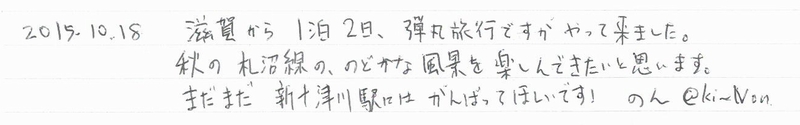 2015.10.18 滋賀から1泊2日、弾丸旅行ですがやって来ました。
秋の札沼線の、のどかな風景を楽しんできたいと思います。
まだまだ新十津川駅にはがんばってほしいです! のん @ki~Non